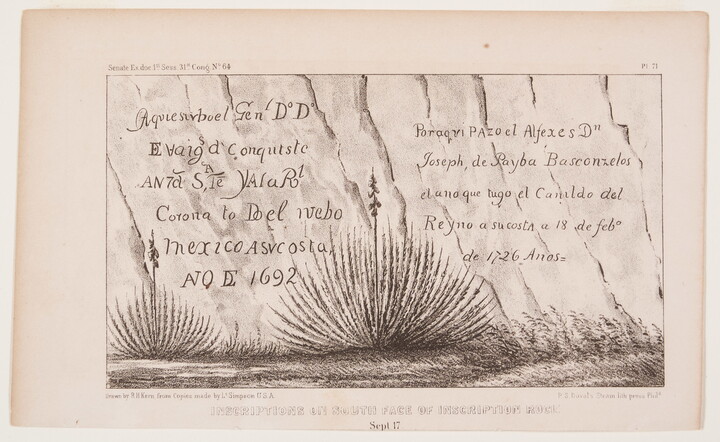 Senate Ex. doc. 1st Sess. 31st Cong. No 64
Pl. 71
Aquiesrvboel Gen l Do Do
E Vargs d Conquiste
AN7d S TA Fe YAlaRl
Corona to Del nvebo
Mexico Asvcosta,
AÑO DE 1692
Poraqui PAZO el Alfexes Dn
Joseph, de Payba Basconzelos
el ano que tugo el Canildo del
Reyno a sucosta a 18 de febo
de 1726 Anos=
Drawn by R.H.Kern, from Copies made by Lt. Simpson U.S.A.
P.S. Duval's Steam lith. press Phila.
INSCRIPTIONS ON SOUTH FACE OF INSCRIPTION ROCK
Sept 17